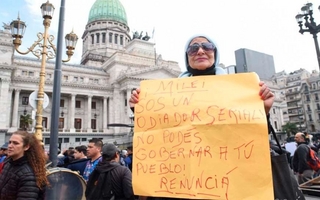 MILEI
SOS UN
ODIADOR SERIAL
NO PODES
GOBERNAR A TU
PUEBLO!
RENUNCIÁ